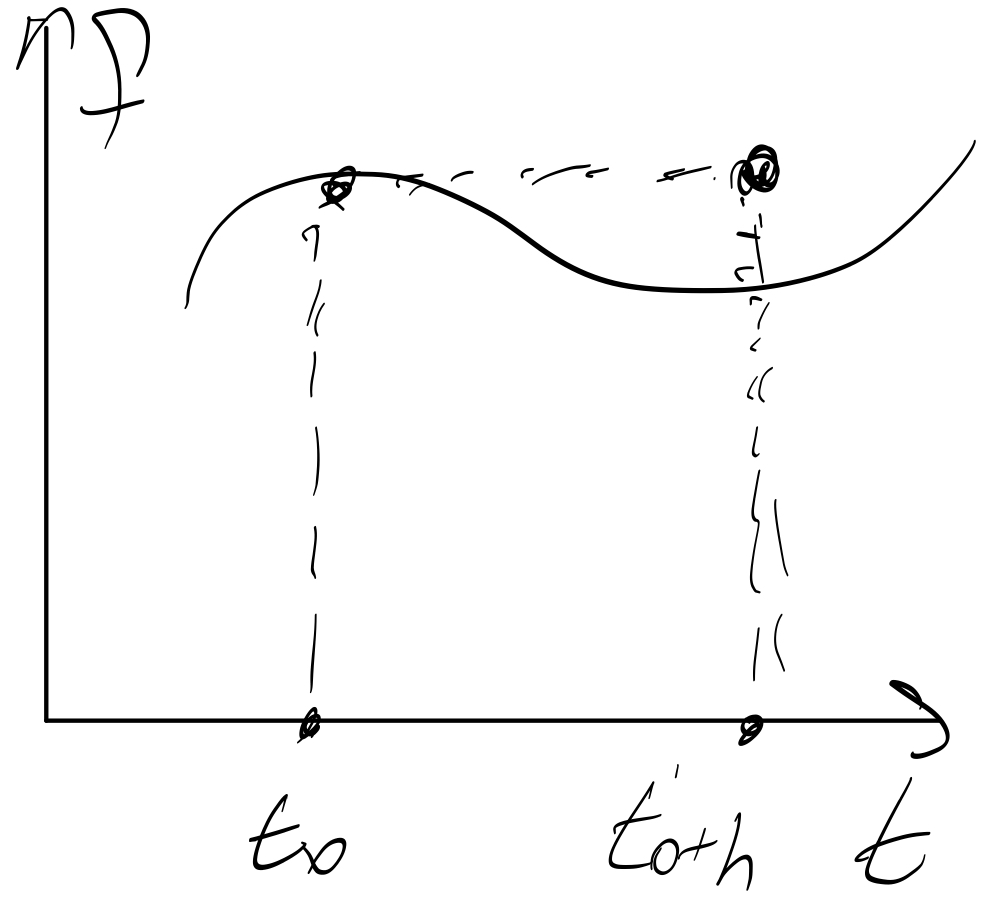 P
t₀
t₀+h
t